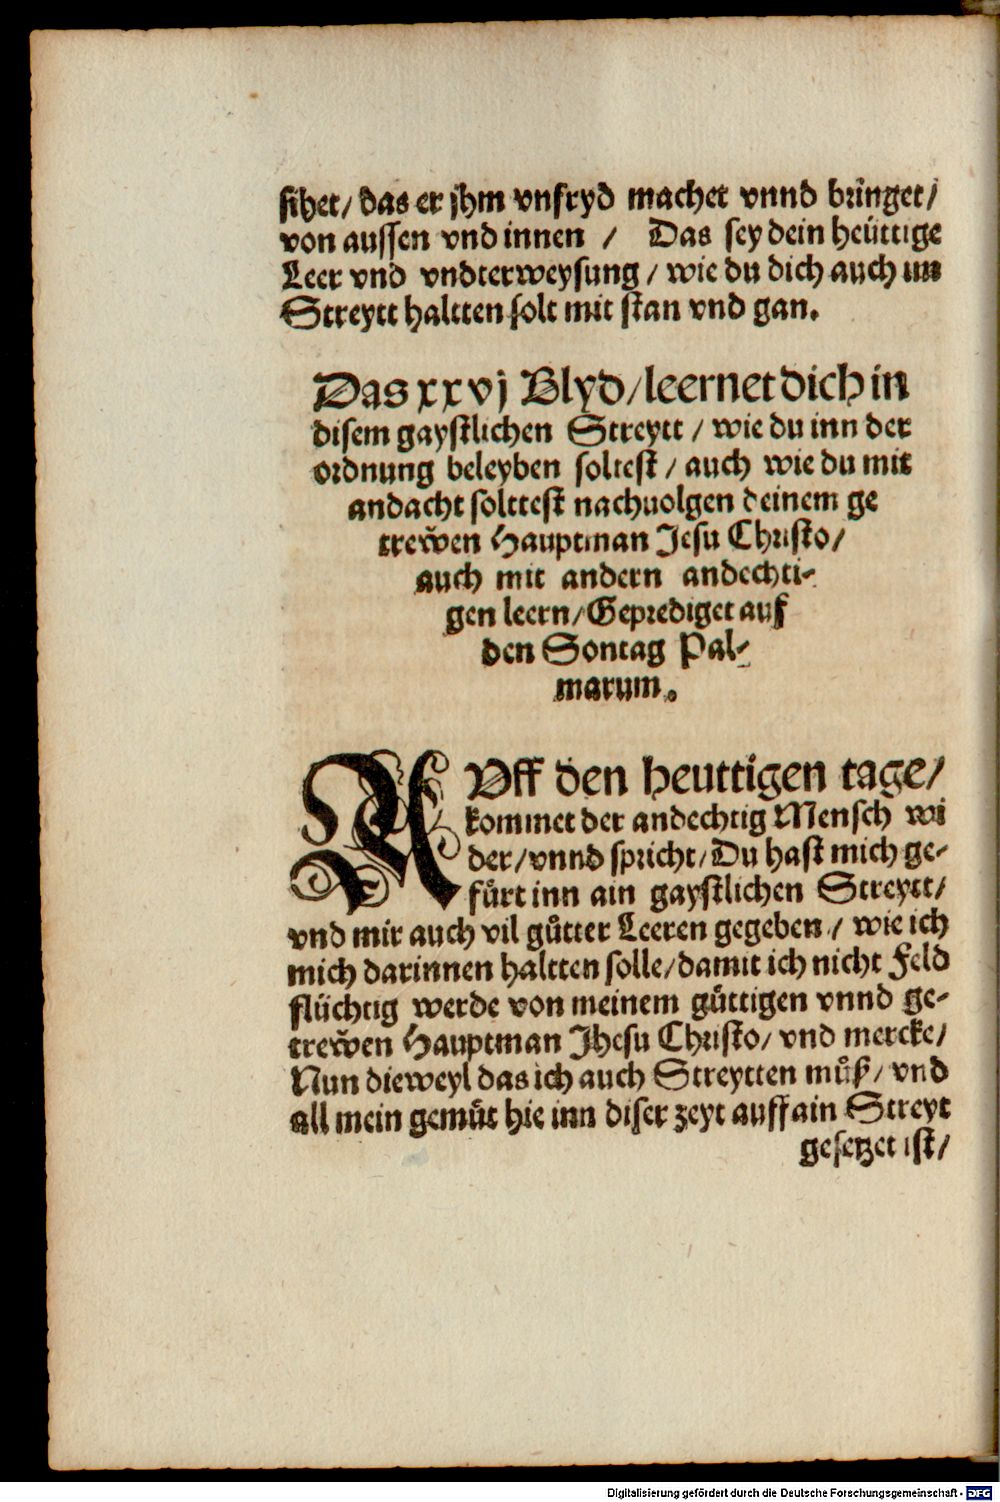 sihet/ das er jhm vnfryd machet vnnd bringet/
von aussen vnd innen / Das sey dein heüttige
Leer vnd vndterweysung / wie du dich auch im
Streytt haltten solt mit stan vnd gan.
Das xxvj Blyd/ leernet dich in
disem gaystlichen Streytt / wie du inn der
ordnung beleyben soltest / auch wie du mit
andacht solttest nachuolgen deinem ge
trewͤen Hauptman Jesu Christo/
auch mit andern andechti-
gen leern/ Geprediget auf
den Sontag Pal-
marum.
AVff den heuttigen tage/
kommet der andechtig Mensch wi
der/ vnnd spricht/ Du hast mich ge-
fuͤrt inn ain gaystlichen Streytt/
vnd mir auch vil guͤtter Leeren gegeben / wie ich
mich darinnen haltten solle/ damit ich nicht Feld
fluͤchtig werde von meinem guͤttigen vnnd ge-
trewͤen Hauptman Jhesu Christo/ vnd mercke/
Nun dieweyl das ich auch Streytten muͤß/ vnd
all mein gemuͤt hie inn diser zeyt auff ain Streyt
gesetzet ist/
Digitalisierung gefördert durch die Deutsche Forschungsgemeinschaft - DFG